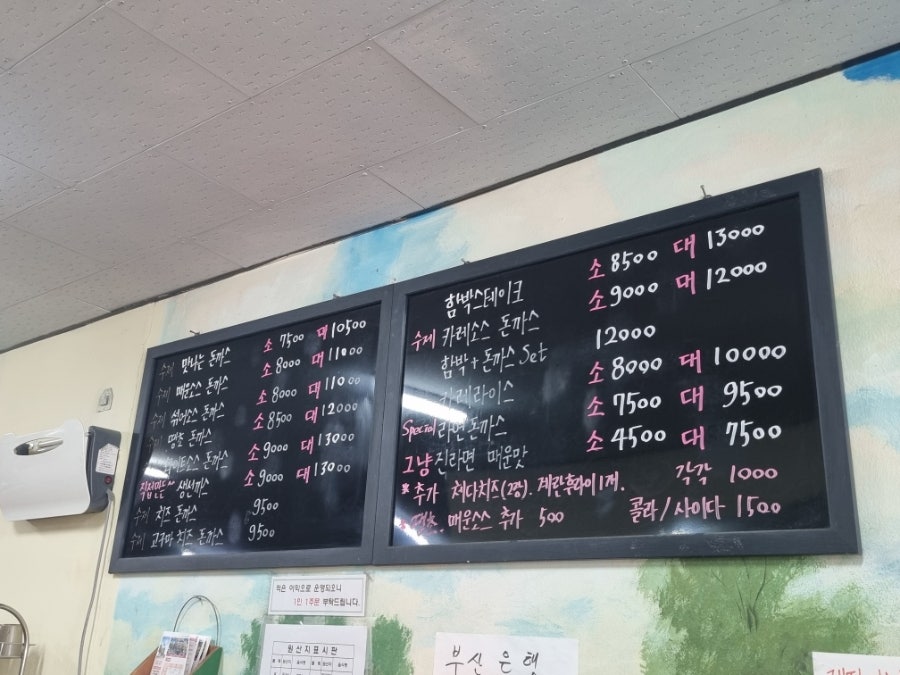 수제 맛나는 돈까스 소 7500 대 10500
수제 매운소스 돈까스 소 8000 대 11000
수제 소스 돈까스 소 8000 대 11000
땡초 돈까스 소 8500 대 12000
화이트소스 돈까스 소 9000 대 13000
직접만든 생선까스 소 9000 대 13000
수제 치즈 돈까스 9500
수제 고구마 치즈 돈까스 9500
함박스테이크 소 8500 대 13000
수제 카레소스 돈까스 소 9000 머 12000
함박+돈까스 Set 12000
카레라이스 소 8000 대 10000
Special 라면돈까스 소 7500 대 9500
그냥 진라면 매운맛 소 4500 대 7500
※ 추가 체다치즈(2장). 계란후라이1개. 각각 1000
땡초. 매운소스 추가 500 콜라/사이다 1500
적은 이익으로 운영되오니
1인 1주문 부탁드립니다.
원산지표시판
부산은행